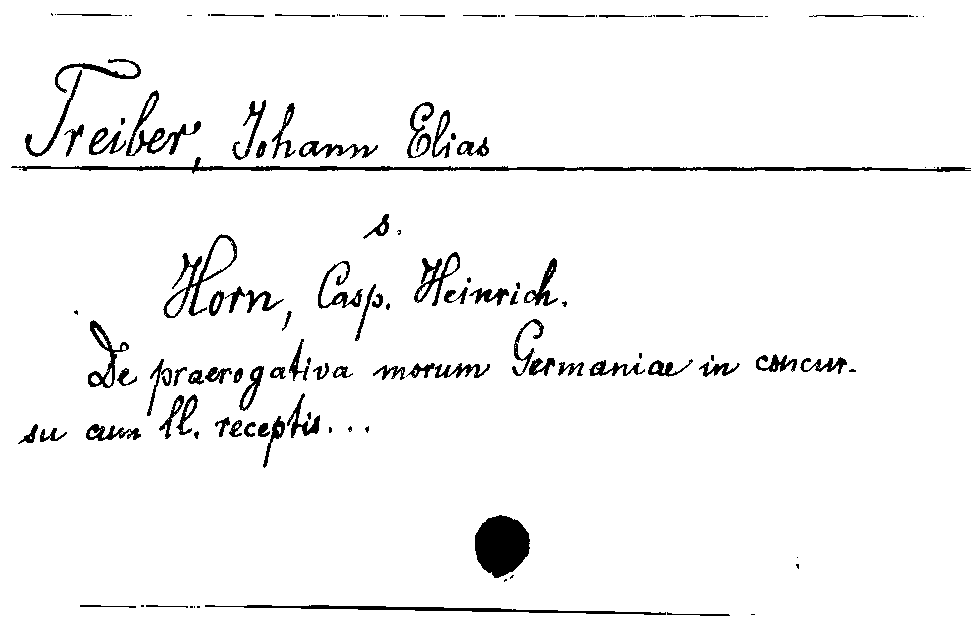 Treiber, Johann Elias
s.
Horn, Casp. Heinrich.
De praerogativa morum Germaniae in concur-
su cum ll. receptis...